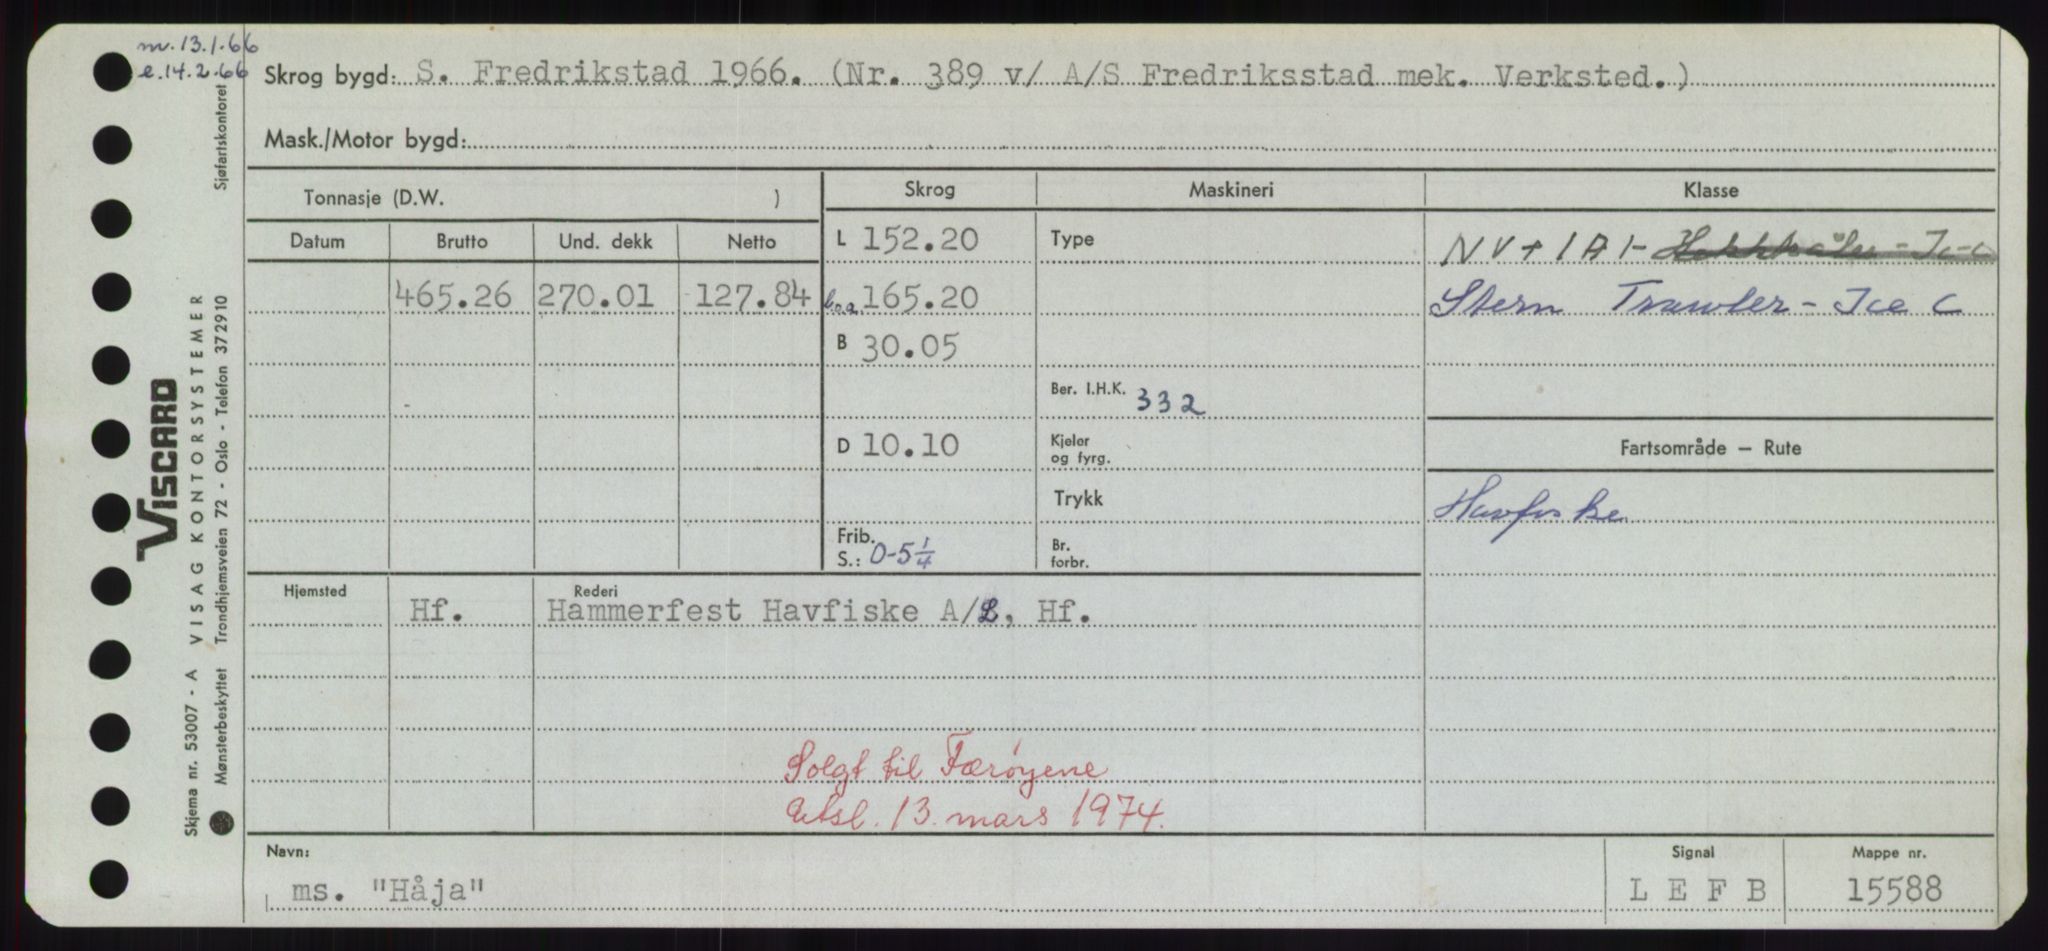 m. 13.1.66
e. 14.2.66
Skrog bygd: S. Fredrikstad 1966. (Nr. 389 v/ A/S Fredriksstad mek. Verksted.)
Mask./Motor bygd:
Tonnasje (D.W. )
Skrog Maskineri Klasse
Datum Brutto Und. dekk Netto
L 152.20 Type NV + 1A1-
465.26 270.01 127.84 l.o.a. 165.20 Stern Trawler - Ice C
B 30.05
Ber. I.H.K. 332
D 10.10 Kjeler og fyrg. Fartsområde — Rute
Trykk Havfiske
Frib. S.: 0-5 1/4 Br. forbr.
Hjemsted Rederi
Hf. Hammerfest Havfiske A/L, Hf.
Solgt til Færøyene
Utsl. 13. mars 1974.
Navn: Signal Mappe nr.
ms. "Håja" L E F B 15588
VISCARD
Skjema nr. 53007 - A VISAG KONTORSYSTEMER
Mønsterbeskyttet Trondhjemsveien 72 - Oslo - Telefon 372910 Sjøfartskontoret